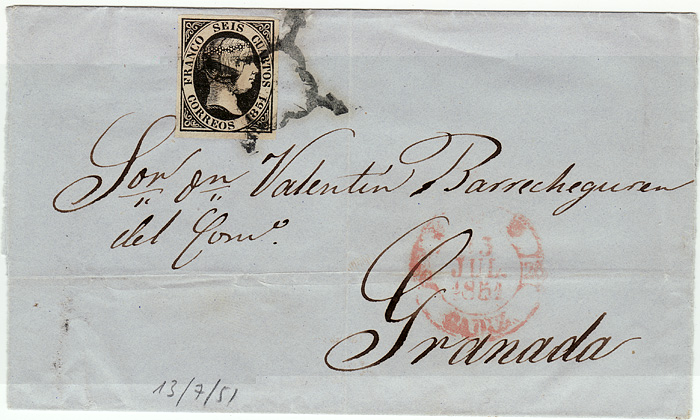 FRANCO SEIS CUARTOS
CORREOS 1851
Sor. Dn. Valentín Barrecheguren
del Como.
Granada
13 JUL. 1851
CADIZ
13/7/51